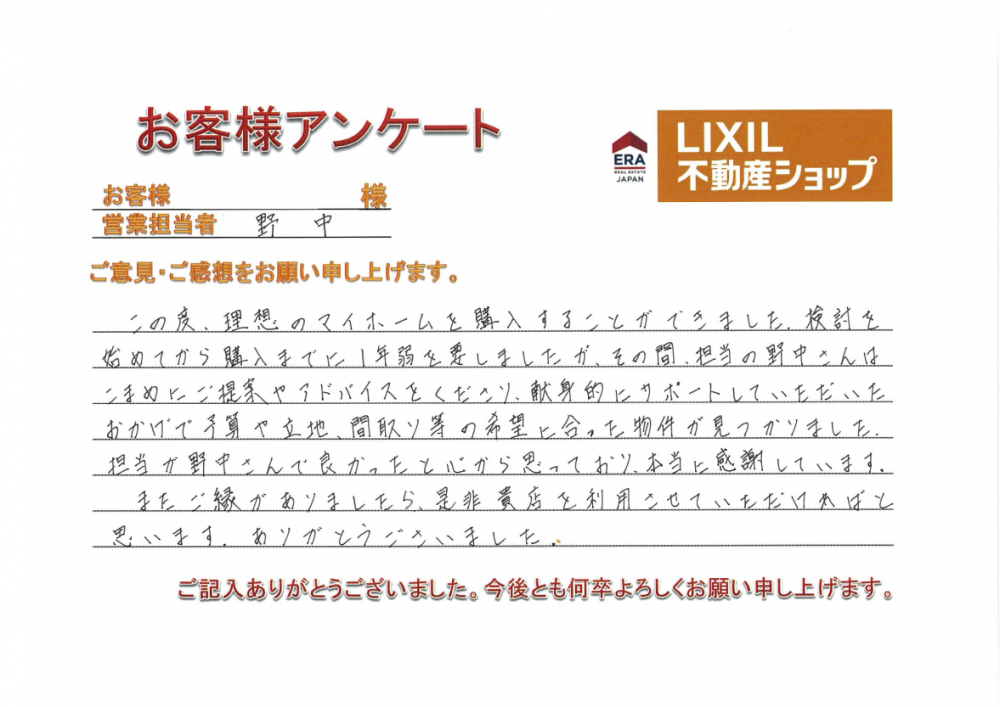 お客様アンケート
ERA
REAL ESTATE
JAPAN
LIXIL
不動産ショップ
お客様 様
営業担当者 野中
ご意見・ご感想をお願い申し上げます。
この度、理想のマイホームを購入することができました。検討を
始めてから購入までに1年弱を要しましたが、その間、担当の野中さんは
こまめにご提案やアドバイスをくださり、献身的にサポートしていただいた
おかげで予算や立地、間取り等の希望に合った物件が見つかりました。
担当が野中さんで良かったと心から思っており、本当に感謝しています。
またご縁がありましたら、是非貴店を利用させていただければと
思います。ありがとうございました。
ご記入ありがとうございました。今後とも何卒よろしくお願い申し上げます。